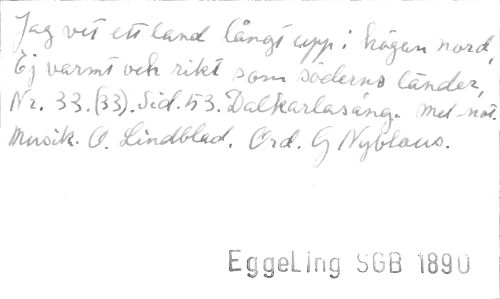 Jag vet ett land långt upp i högan nord,
Ej varmt och rikt som söderns länder,
Nr. 33.(33). Sid. 53. Dalkarlasång. Med not.
Musik. O. Lindblad. Ord. G Nyblaus.
EggeLing SGB 1890